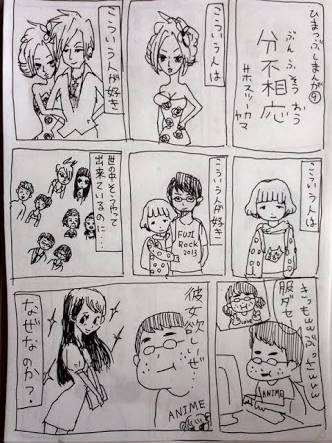 ひまつぶしまんが④
ぶんふそうおう
分不相応
#ホスツーヤカマ
こういう人は
こういう人が好き
こういう人は
こういう人が好き
FUJI
Rock
2013
世の中そうやって
出来ているのに…
きっもwwぶっさwww
服ダセ
ANIME
彼女欲しいぜ…
ANIME
なぜなのか？